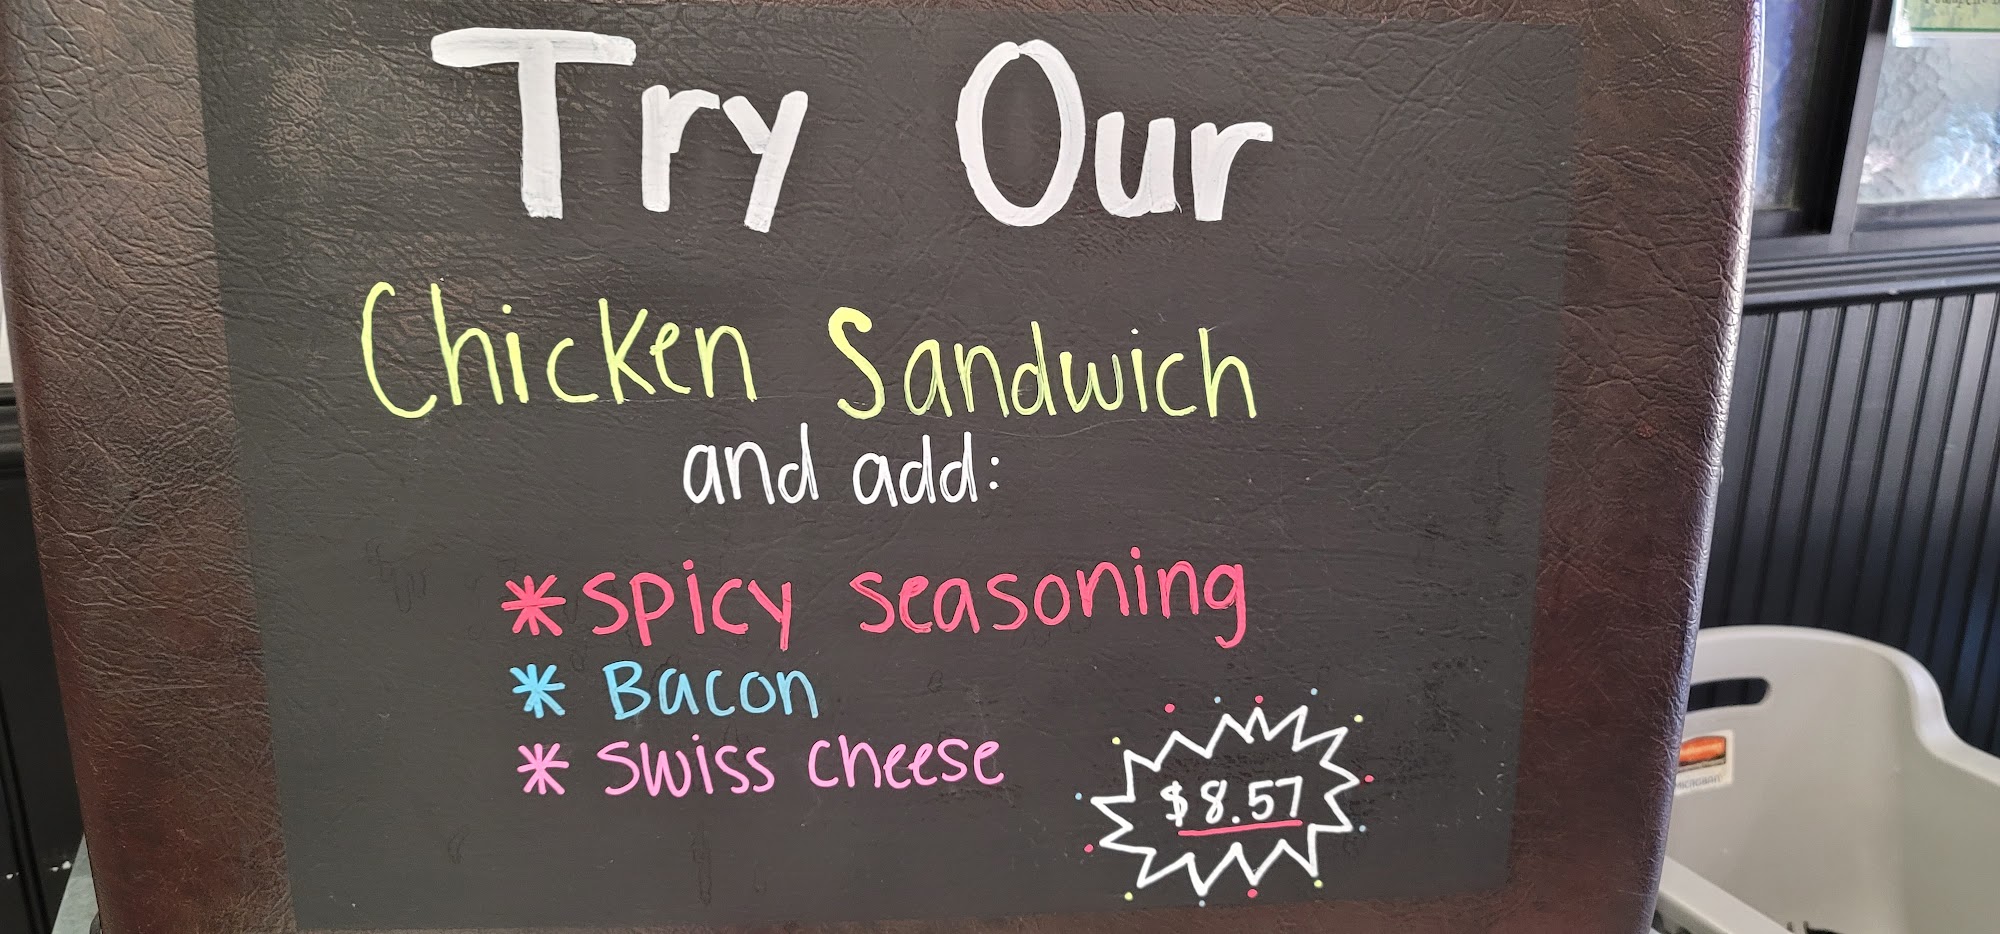 Try Our
Chicken Sandwich
and add:
* Spicy seasoning
* Bacon
* Swiss cheese
$8.57